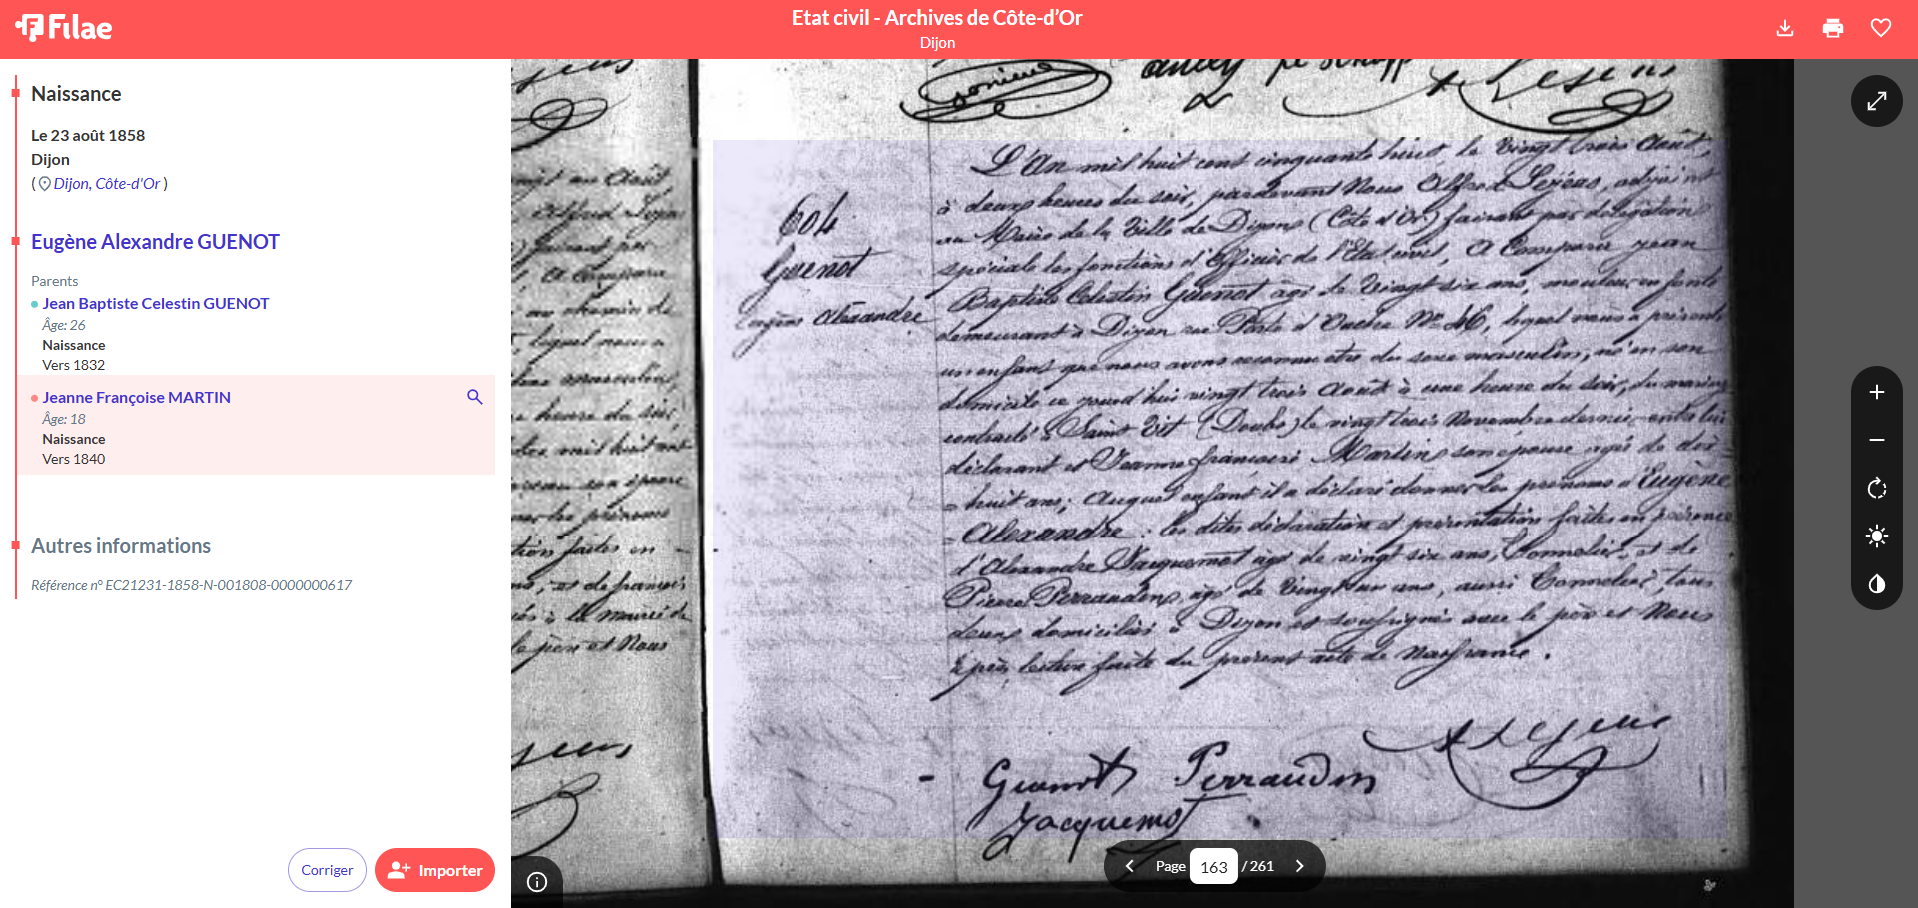 Filae
Etat civil - Archives de Côte-d’Or
Dijon
Naissance
Le 23 août 1858
Dijon
( Dijon, Côte-d'Or )
Eugène Alexandre GUENOT
Parents
Jean Baptiste Celestin GUENOT
Âge: 26
Naissance
Vers 1832
Jeanne Françoise MARTIN
Âge: 18
Naissance
Vers 1840
Autres informations
Référence n° EC21231-1858-N-001808-0000000617
Corriger
Importer
604
Guenot
Eugène Alexandre
L'An mil huit cent cinquante huit, le vingt trois Août,
à deux heures du soir, pardevant Nous Alfred Lejeas, adjoint
au Maire de la Ville de Dijon (Côte d'Or) faisant par délégation
spéciale les fonctions d'Officier de l'Etat civil, A Comparu jean
Baptiste Celestin Guenot âgé de vingt six ans, mouleur en fonte
demeurant à Dijon rue Porte d'Ouche N° 46, lequel nous a présenté
un enfant que nous avons reconnu être du sexe masculin, né en son
domicile ce jourd'hui vingt trois Août à une heure du soir, du mariage
contracté à Saint Vit (Doubs) le vingt trois Novembre dernier entre lui
déclarant et Jeanne françoise Martin son épouse âgée de dix-
-huit ans; Auquel enfant il a déclaré donner les prénoms d'Eugène
-Alexandre. les dites déclaration et présentation faites en présence
d'Alexandre Jacquemot âgé de vingt six ans, Tonnelier, et de
Pierre Perraudin, âgé de vingt ans, aussi Tonnelier, tous
deux domiciliés à Dijon et soussignés avec le père et Nous
Après lecture faite du présent acte de Naissance.
Guenot Perraudin A Lejeas
Jacquemot
Page 163 / 261